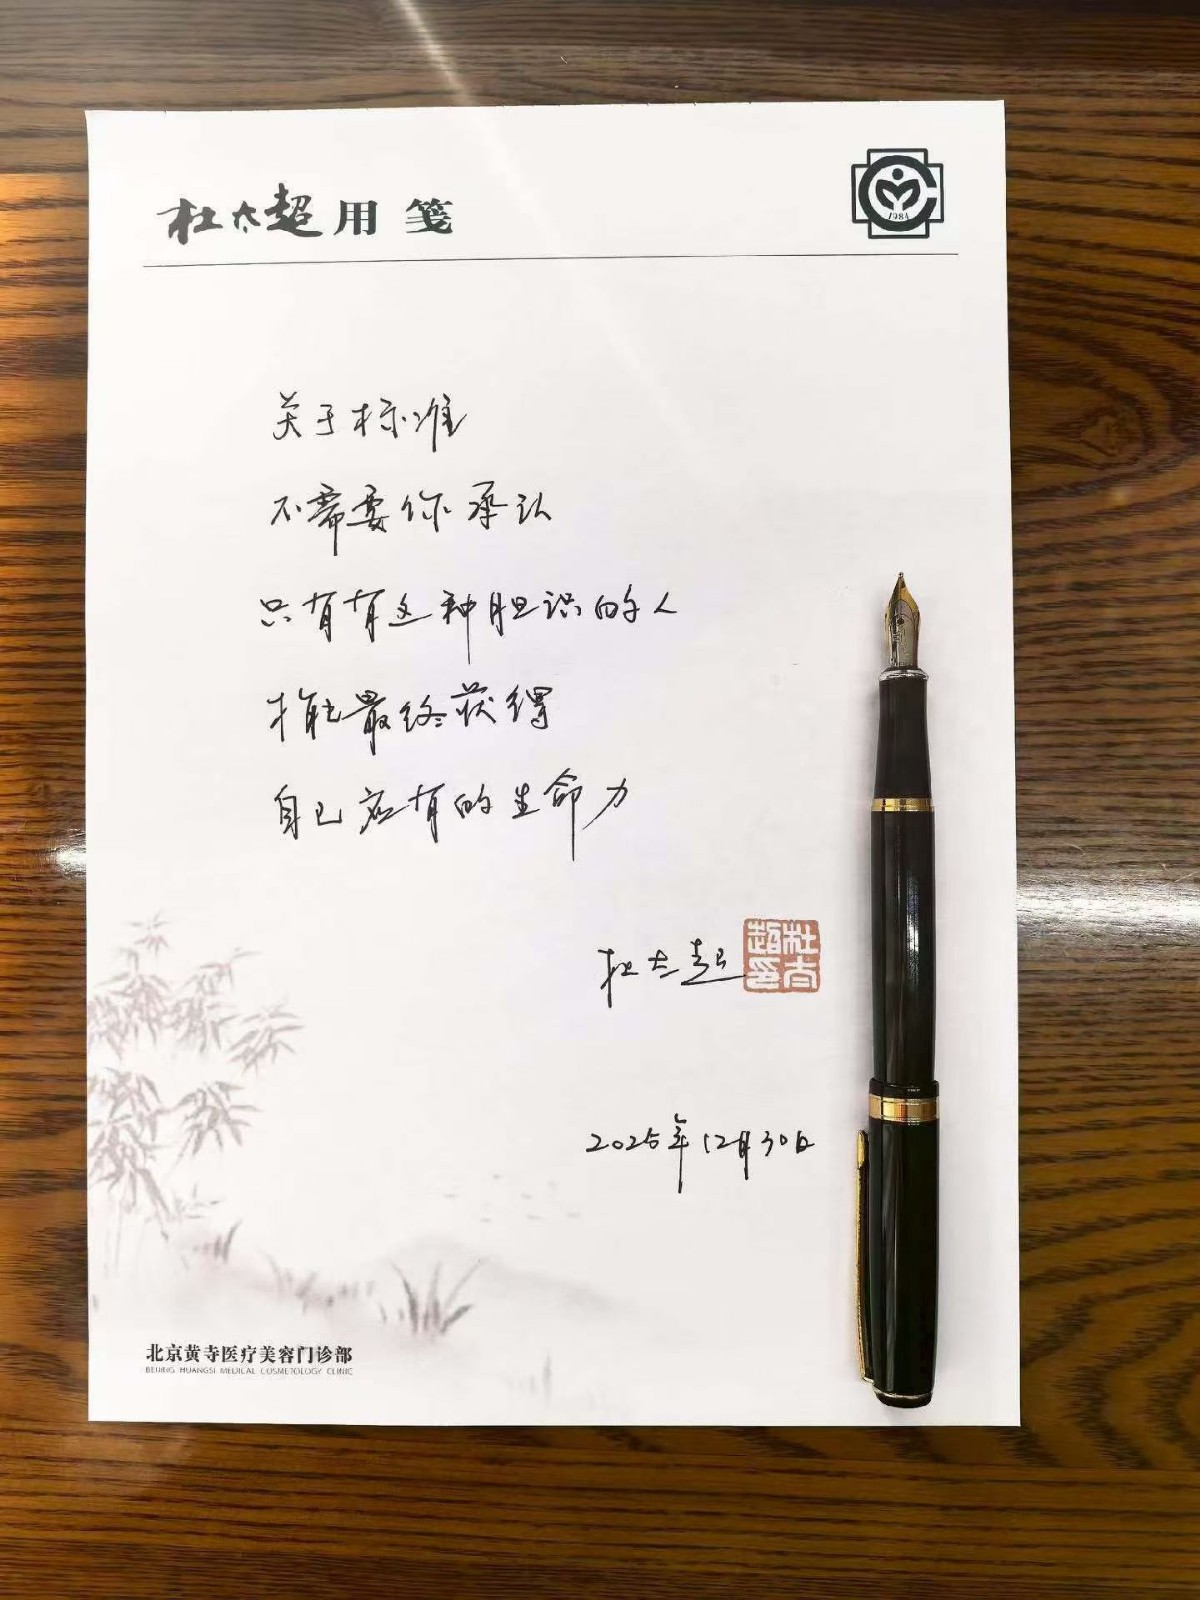 杜太超用笺
1984
关于标准
不需要你承认
只有有这种胆识的人
才能最终获得
自己应有的生命力
杜太超
杜太超印
2025年12月30日
北京黄寺医疗美容门诊部
BEIJING HUANGSI MEDICAL COSMETOLOGY CLINIC